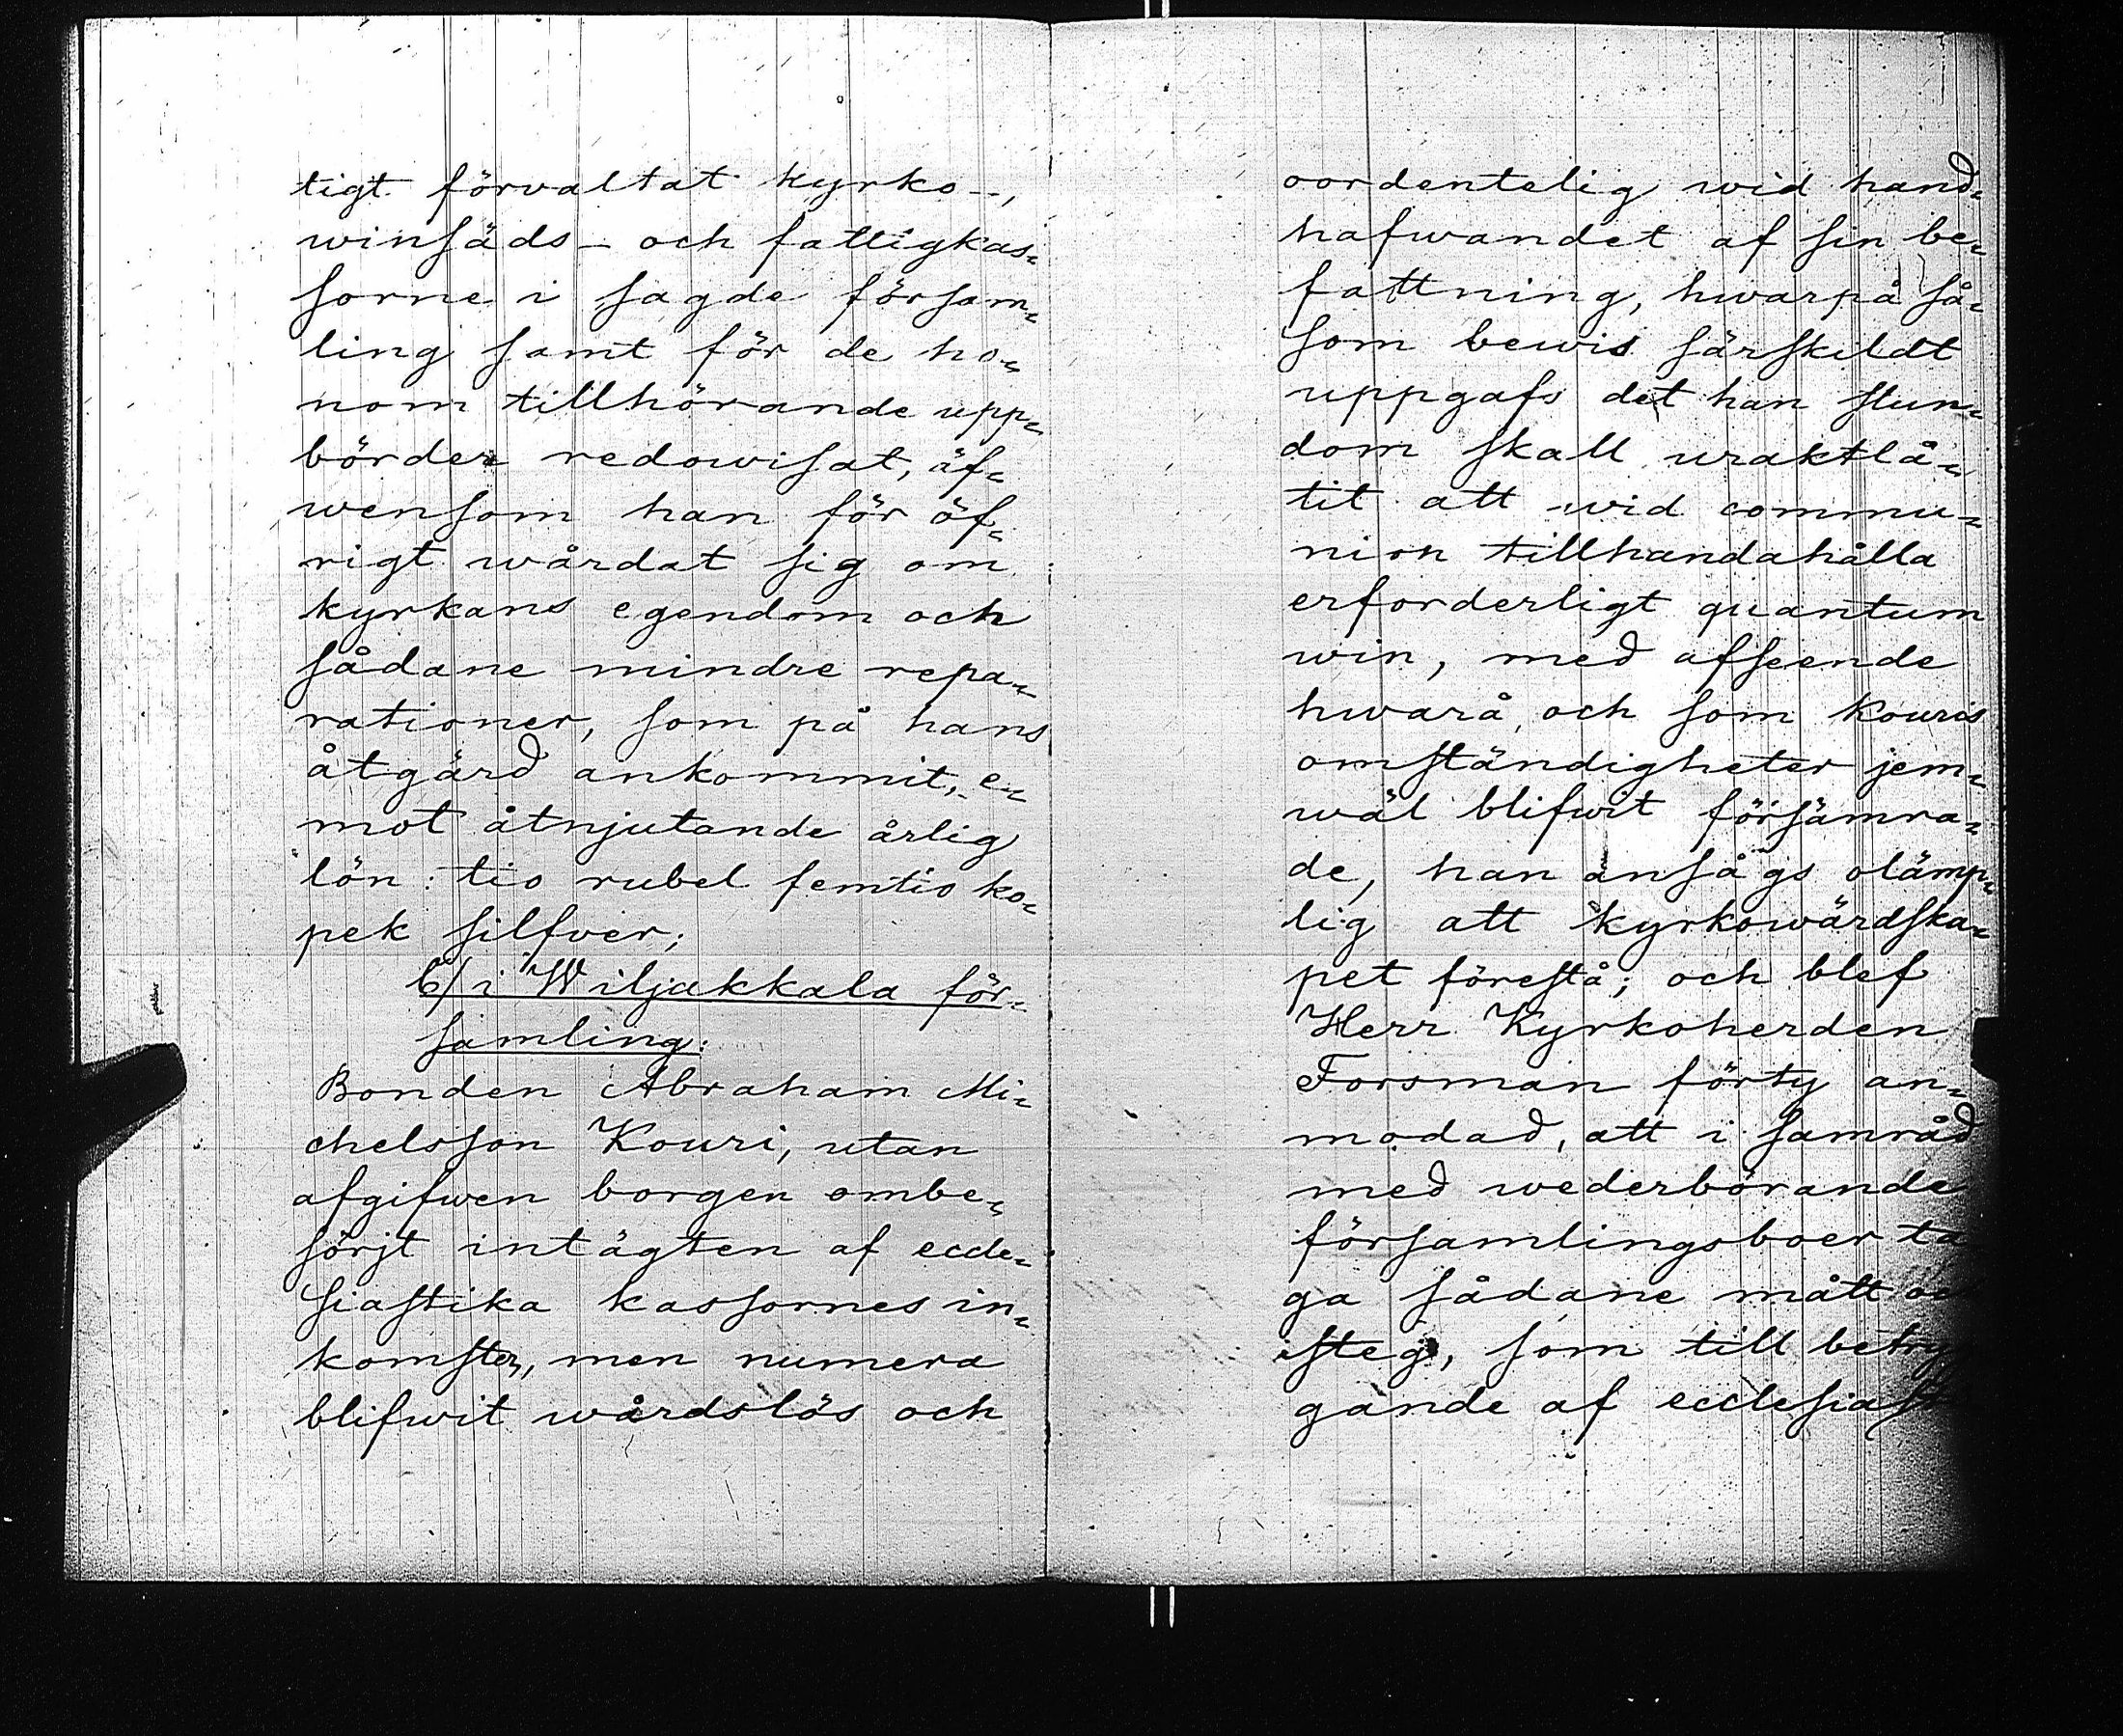 tigt förvaltat kyrko-,
winsäds- och fattigkas-
sorne i sagde försam-
ling samt för de ho-
nom tillhörande upp-
börder redowisat, äf-
wensom han för öf-
rigt wårdat sig om
kyrkans egendom och
sådane mindre repa-
rationer, som på hans
åtgärd ankommit, e-
mot åtnjutande årlig
lön: tio rubel femtio ko-
pek silfver;
b/ i Wiljakkala för-
samling:
Bonden Abraham Mi-
chelsson Kouri, utan
afgifwen borgen ombe-
sörjt intägten af eccle-
siastika kassornes in-
komster, men numera
blifwit wårdslös och
oordentelig wid hand-
hafwandet af sin be-
fattning, hwarpå så-
som bewis särskildt
uppgafs det han stun-
dom skall uraktlå-
tit att wid commu-
nion tillhandahålla
erforderligt quantum
win, med afseende
hwarå, och som Kouris
omständigheter jem-
wäl blifwit försämra-
de, han ansågs olämp-
lig att kyrkowärdska-
pet förestå; och blef
Herr Kyrkoherden
Forsman förty an-
modad, att i samråd
med wederbörande
församlingsboer ta
ga sådane mått oc
steg, som till betryg
gande af ecclesiast